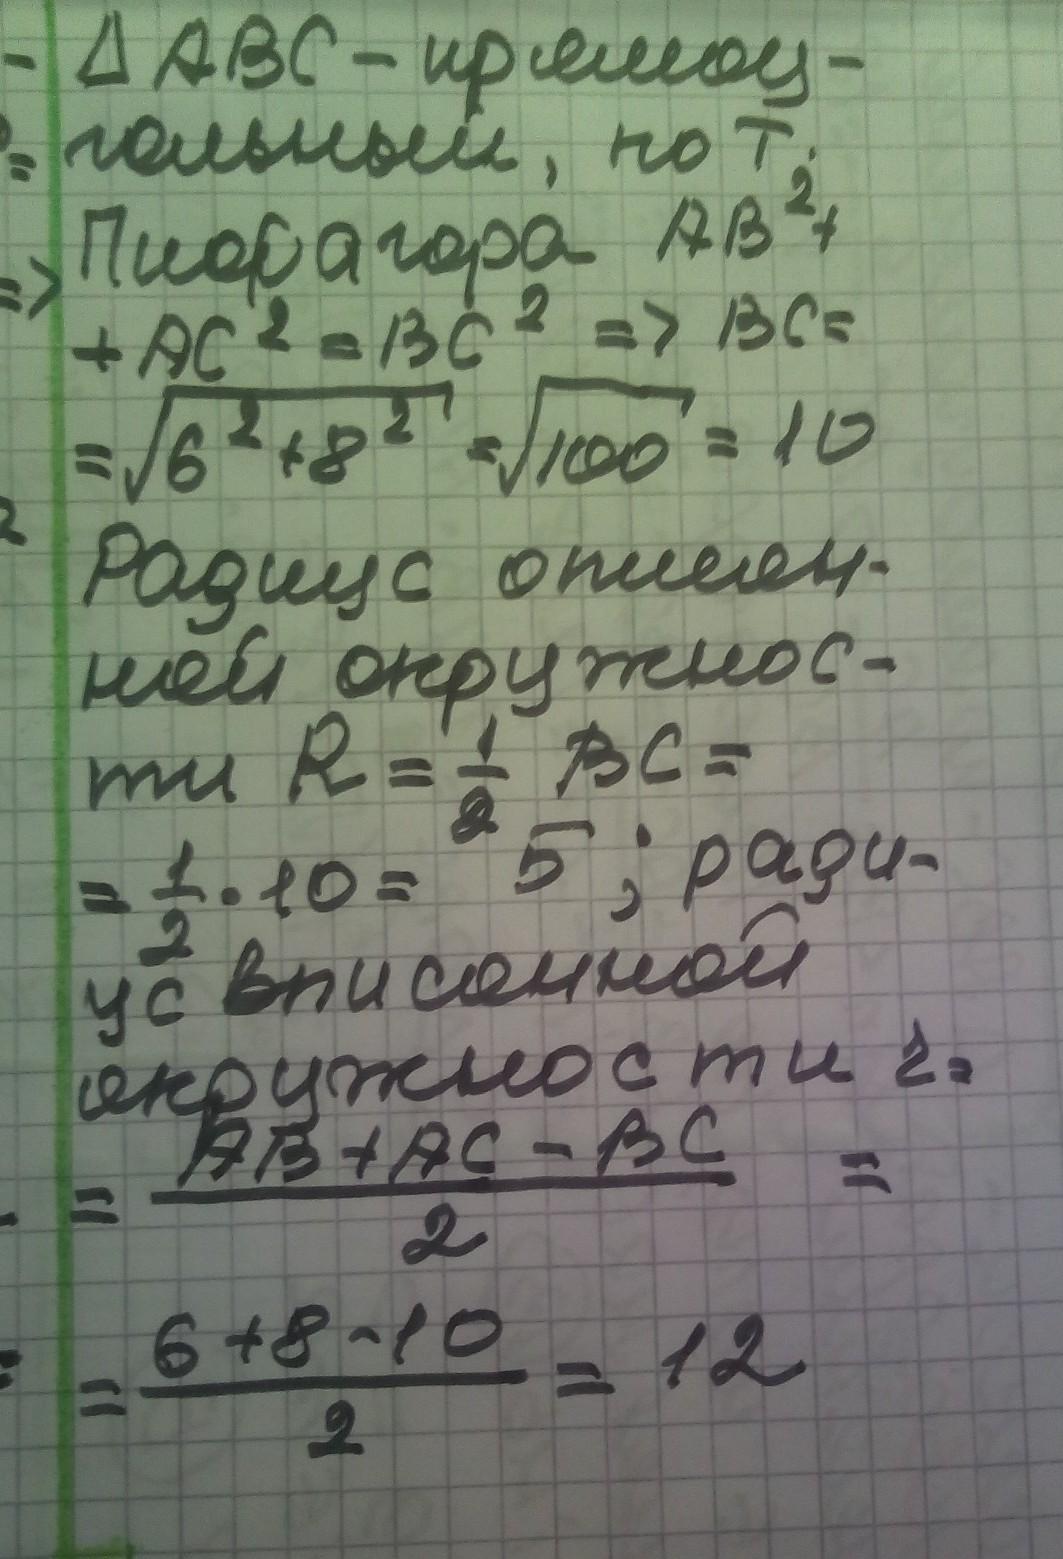 - ΔABC - прямоу-
= гольный, по т.
=> Пифагора AB²+
+ AC² = BC² => BC=
= √6²+8² = √100 = 10
2
Радиус описан-
ной окружнос-
ти R = 1/2 BC =
= 1/2 · 10 = 5 ; ради-
ус вписанной
окружности r =
- = AB+AC-BC/2 =
= = 6+8-10/2 = 12